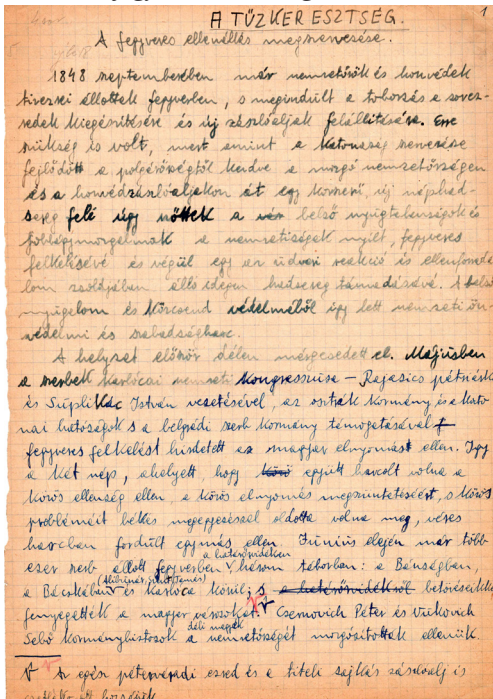 1
A TŰZKERESZTSÉG.
A fegyveres ellenállás megszervezése.
1848 szeptemberében már nemzetőrök és honvédek
tízezrei állottak fegyverben, s megindult a toborzás a sorez-
redek kiegészítésére és új zászlóaljak felállítására. Erre
szükség is volt, mert amint a katonaság szervezése
fejlődött a polgárőrségtől kezdve a mozgó nemzetőrségen
és a honvédzászlóaljakon át egy korszerű, új néphad-
sereg felé úgy nőttek a belső nyugtalanságok és
földségmozgalmak a nemzetiségek nyílt, fegyveres
felkelésévé és végül egy az udvari reakció és ellenforrada
lom zsoldjában álló idegen hadsereg támadásává. A belső
nyugalom és közrend védelméből így lett nemzeti ön-
védelmi és szabadságharc.
A helyzet először délen mérgesedett el. Májusban
a szerbek karlócai nemzeti kongresszusa – Rajasics pátriárka
és Suplikác István vezetésével, az osztrák kormány és a kato-
nai hatóságok s a belgrádi szerb kormány támogatásával
fegyveres felkelést hirdetett az magyar elnyomás ellen. Így
a két nép, ahelyett, hogy együtt harcolt volna a
közös ellenség ellen, a közös elnyomás megszüntetéséért, s közös
problémáit békés megegyezéssel oldotta volna meg, véres
harcban fordult egymás ellen. Június elején már több-
ezer szerb állott fegyverben a határőrvidéken három táborban: a Bánságban,
a Bácskában és Karlóca körül; s a határőrvidékről betöréseikkel
fenyegették a magyar városokat. Csernovich Péter és Vukovich
Sebő kormánybiztosok a déli megyék nemzetőrségét mozgósították ellenük.
Az egész péterváradi ezred és a titeli sajkás zászlóalj is